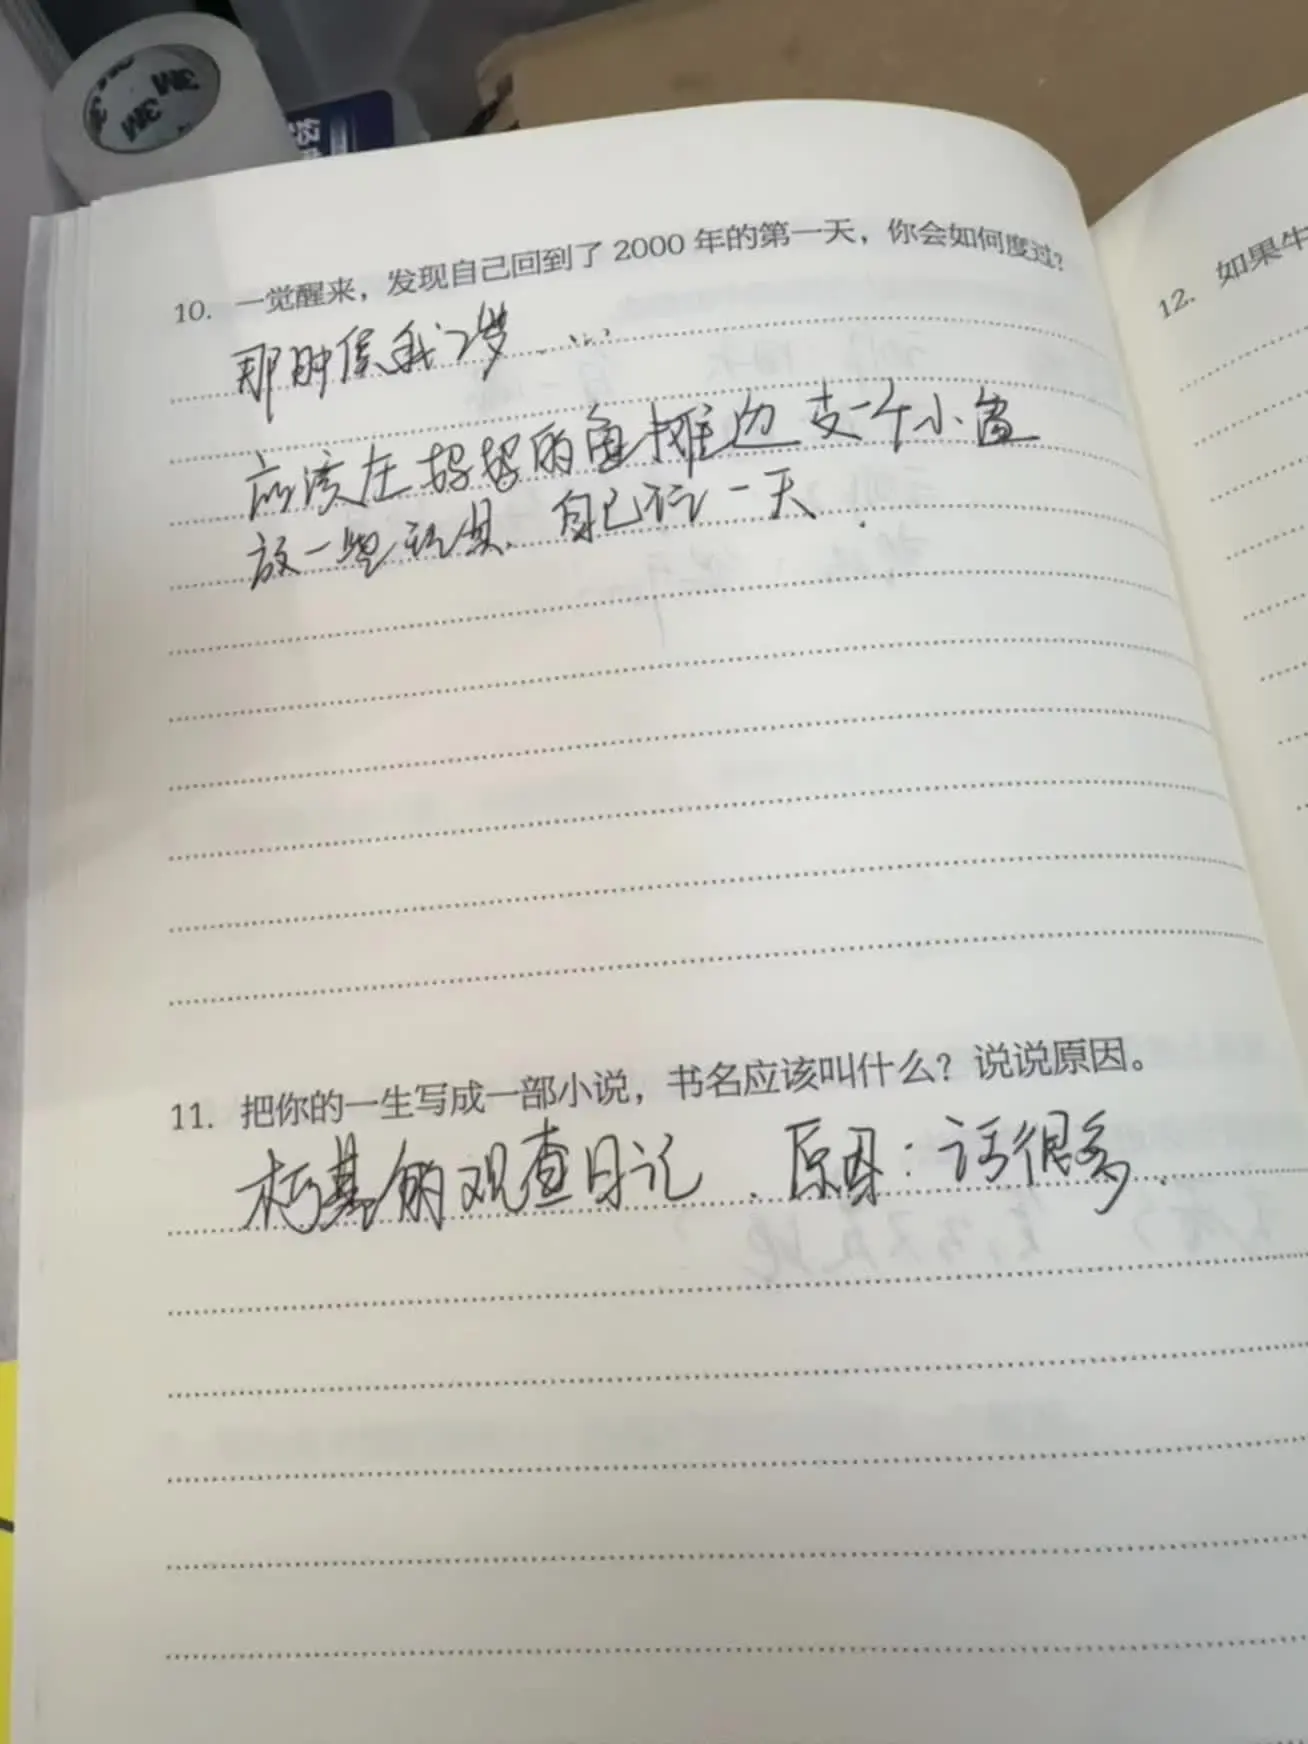 3M 3M
10. 一觉醒来，发现自己回到了 2000 年的第一天，你会如何度过？
那时候我2岁......
应该在妈妈的鱼摊边支一个小盆
放一些玩具. 自己玩一天.
11. 把你的一生写成一部小说，书名应该叫什么？说说原因。
柯基的观查日记. 原因：话很多.
12. 如果牛